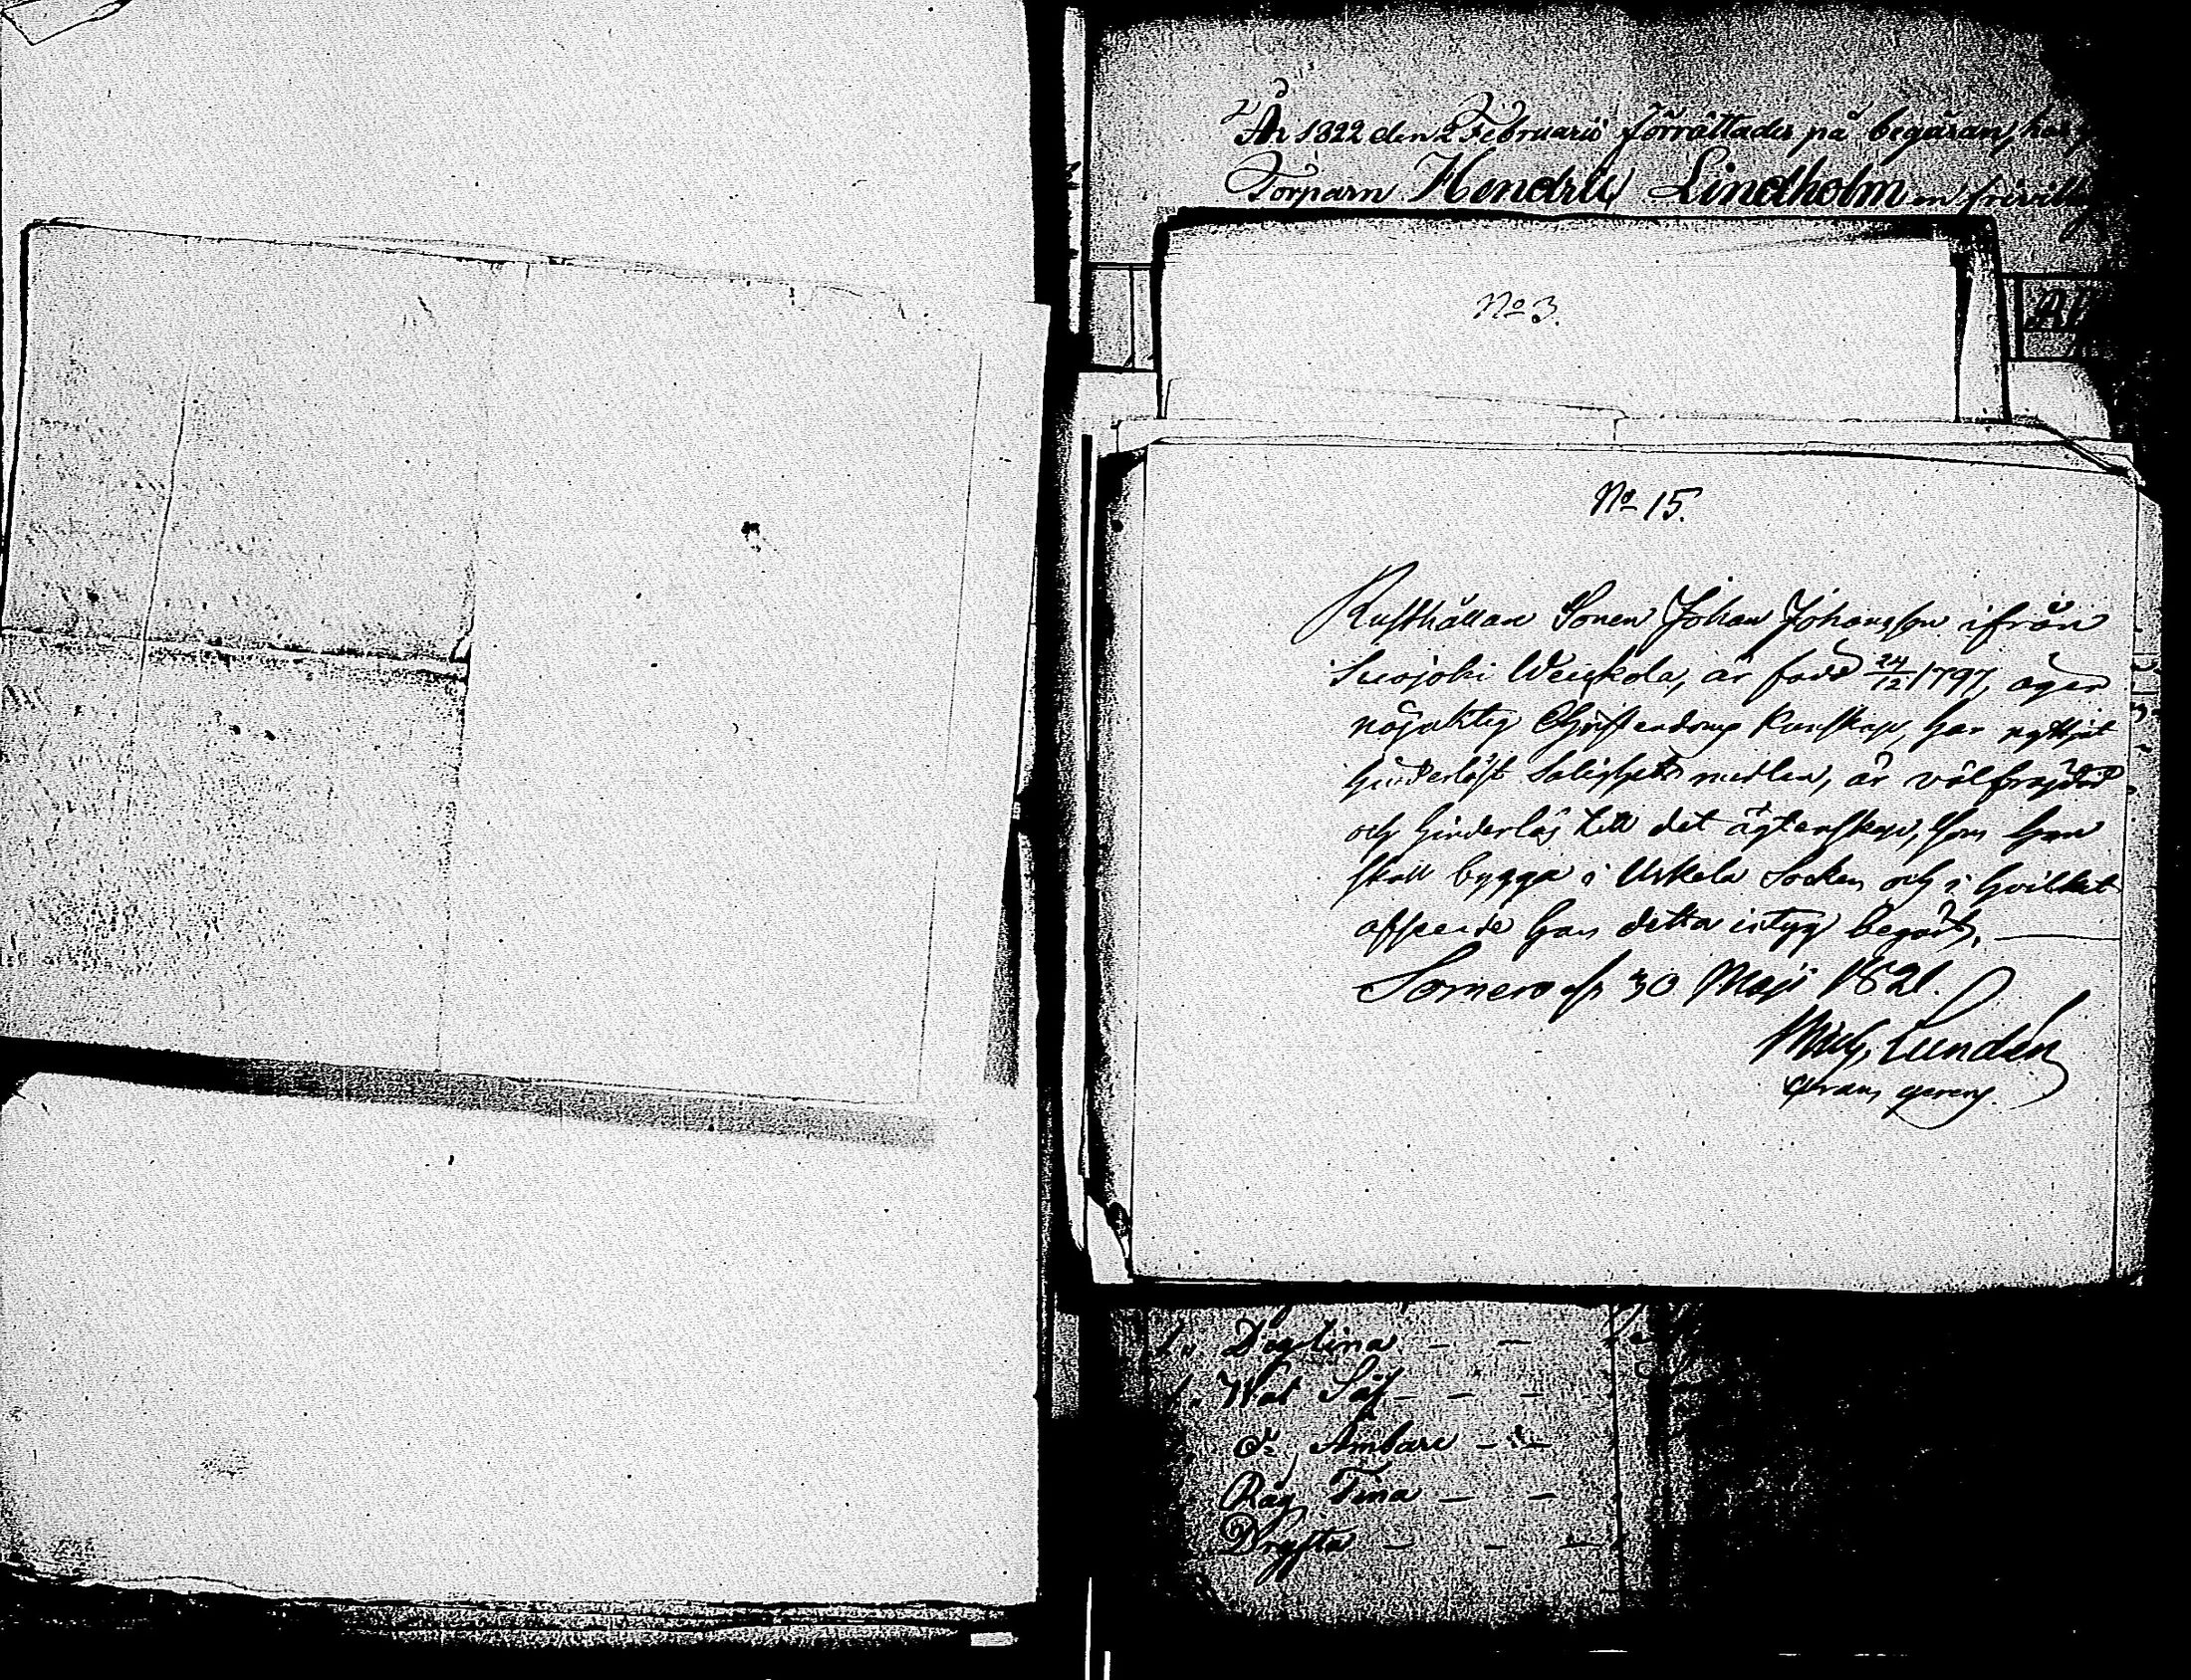 År 1822 den 2 Februarii förrättades på begäran, hos
Torparn Hendric Lindholm en frivillig
No 3.
No 15.
Rusthållare Sonen Johan Johansson ifrån
Suojoki Weiskola, är född 24/12 1797, äger
nöjaktig Christendoms kunskap, har nyttjat
hinderlöst Salighets medlen, är välfrejdad
och hinderlös till det ägtenskap, som han
skall bygga i Uskela Socken och i hvilket
afseende han detta intyg begärt.
Somero d. 30 Maji 1821.
Mich. Lundén
1. Degtina
1. Wat Så
d:o Ämbare
Råg Tina
Dryfta